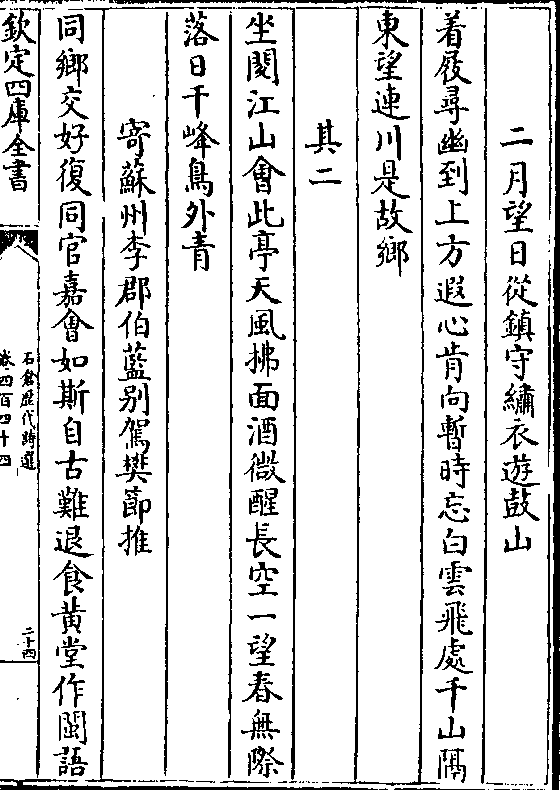 二月望日從鎮守繡衣遊鼓山
着屐尋幽到上方遐心肯向暫時忘白雲飛處千山隔
東望連川是故鄉
其二
坐閱江山會此亭天風拂面酒微醒長空一望春無際
落日千峰鳥外青
寄蘇州李郡伯藍别駕樊節推
同鄉交好復同官嘉會如斯自古難退食黄堂作閩語
欽定四庫全書
石倉歷代詩選
卷四百四十四
二十四